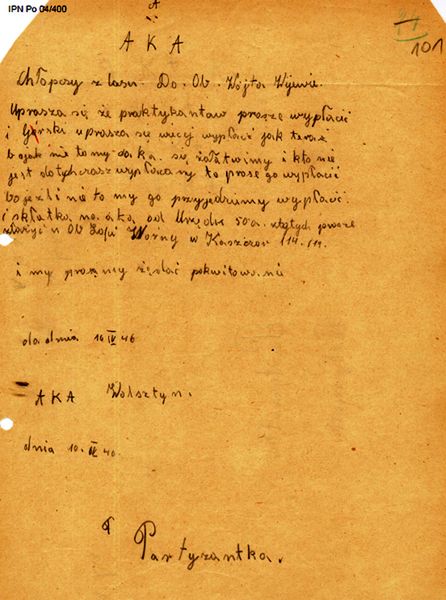 IPN Po 04/400
A
101
A K A
Chłopcy z lasu. Do. Ob. Wójta Wijewie.
Uprasza się że praktykantaw proszę wypłacić
i Górski uprasza się więcej wypłacić jak teraz
bo jak nie to my da ka. są załatwimy i kto nie
jest dotychczas wypłacany to prosę go wypłacić
bo jeżli nie to my go przyjedziemy wypłacić.
i składkę na aką od Urzędu 50.a. złotych proszę
złorzyć u Ob Zofji Worny w Kaszczor
i my prosimy żądać pokwitowanie
do dnia 16 IV 46
AKA Wolsztyn.
dnia 10. IV 46.
Partyzantka.